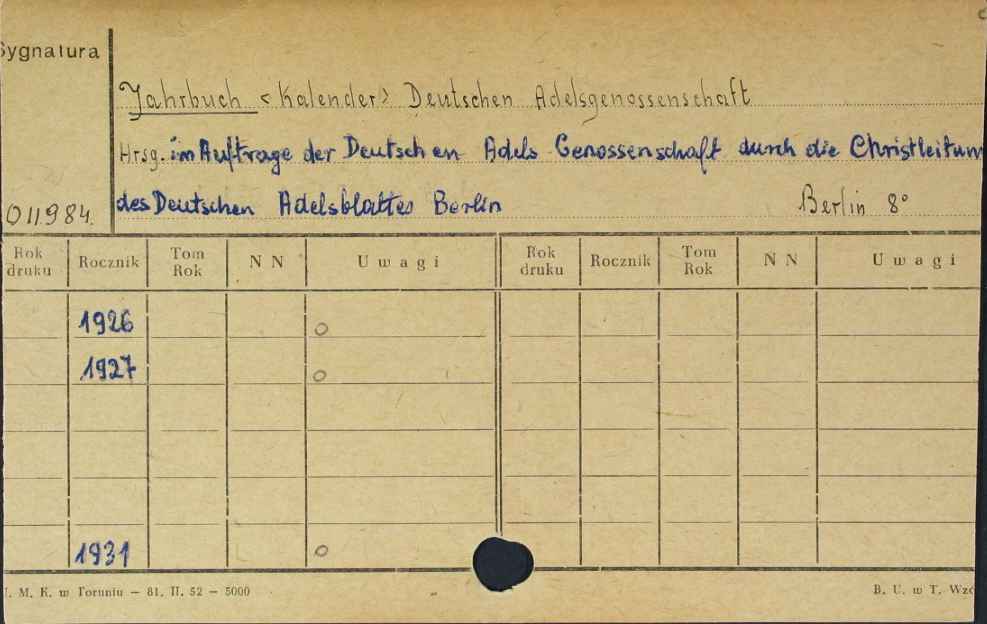 Sygnatura
Jahrbuch <Kalender> Deutschen Adelsgenossenschaft
Hrsg. im Auftrage der Deutschen Adels Genossenschaft durch die Christleitun
des Deutschen Adelsblattes Berlin Berlin 8°
011984.
Rok druku Rocznik Tom Rok N N Uwagi Rok druku Rocznik Tom Rok N N Uwagi
1926 o
1927 o
1931 o
. M. K. w Toruniu — 81. II. 52 — 5000 B. U. w T. Wzó